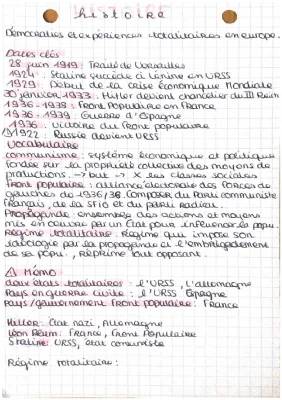 histoire
Démocraties et expériences totalitaires en europe.
Dates clés
28 juin 1919 : Traité de Versailles
1924 : Staline succède à Lénine en URSS
1929 : Début de la crise économique Mondiale
30 janvier 1933 : Hitler devient chancelier du III Reich
1936-1938 : Front Populaire en France
1936-1939 : Guerre d'Espagne
1936 : Victoire du front populaire
⚠ 1922 : Russie devient URSS
Vocabulaire
communisme : système économique et politique
fondée sur la propriété collective des moyens de
productions. → but → X les classes sociales
Front populaire : alliance électorale des forces de
gauches de 1936/38. Composer du Parti communiste
Français, de la SFIO et du parti Radical.
Propagande : ensembles des actions et moyens
mis en oeuvre par un État pour influencer la popu.
Régime totalitaire : régime que impose son
idéologie par la propagande et l'embrigadement
de sa popu, réprime tout opposant.
⚠ Mémo
deux états totalitaires : l'URSS, l'allemagne
Pays en guerre civile : l'URSS Espagne
Pays/gouvernement Front populaire : France
Hitler : État nazi, Allemagne
Léon Blum : France, Front Populaire
Staline : URSS, état comuniste
Régime totalitaire :